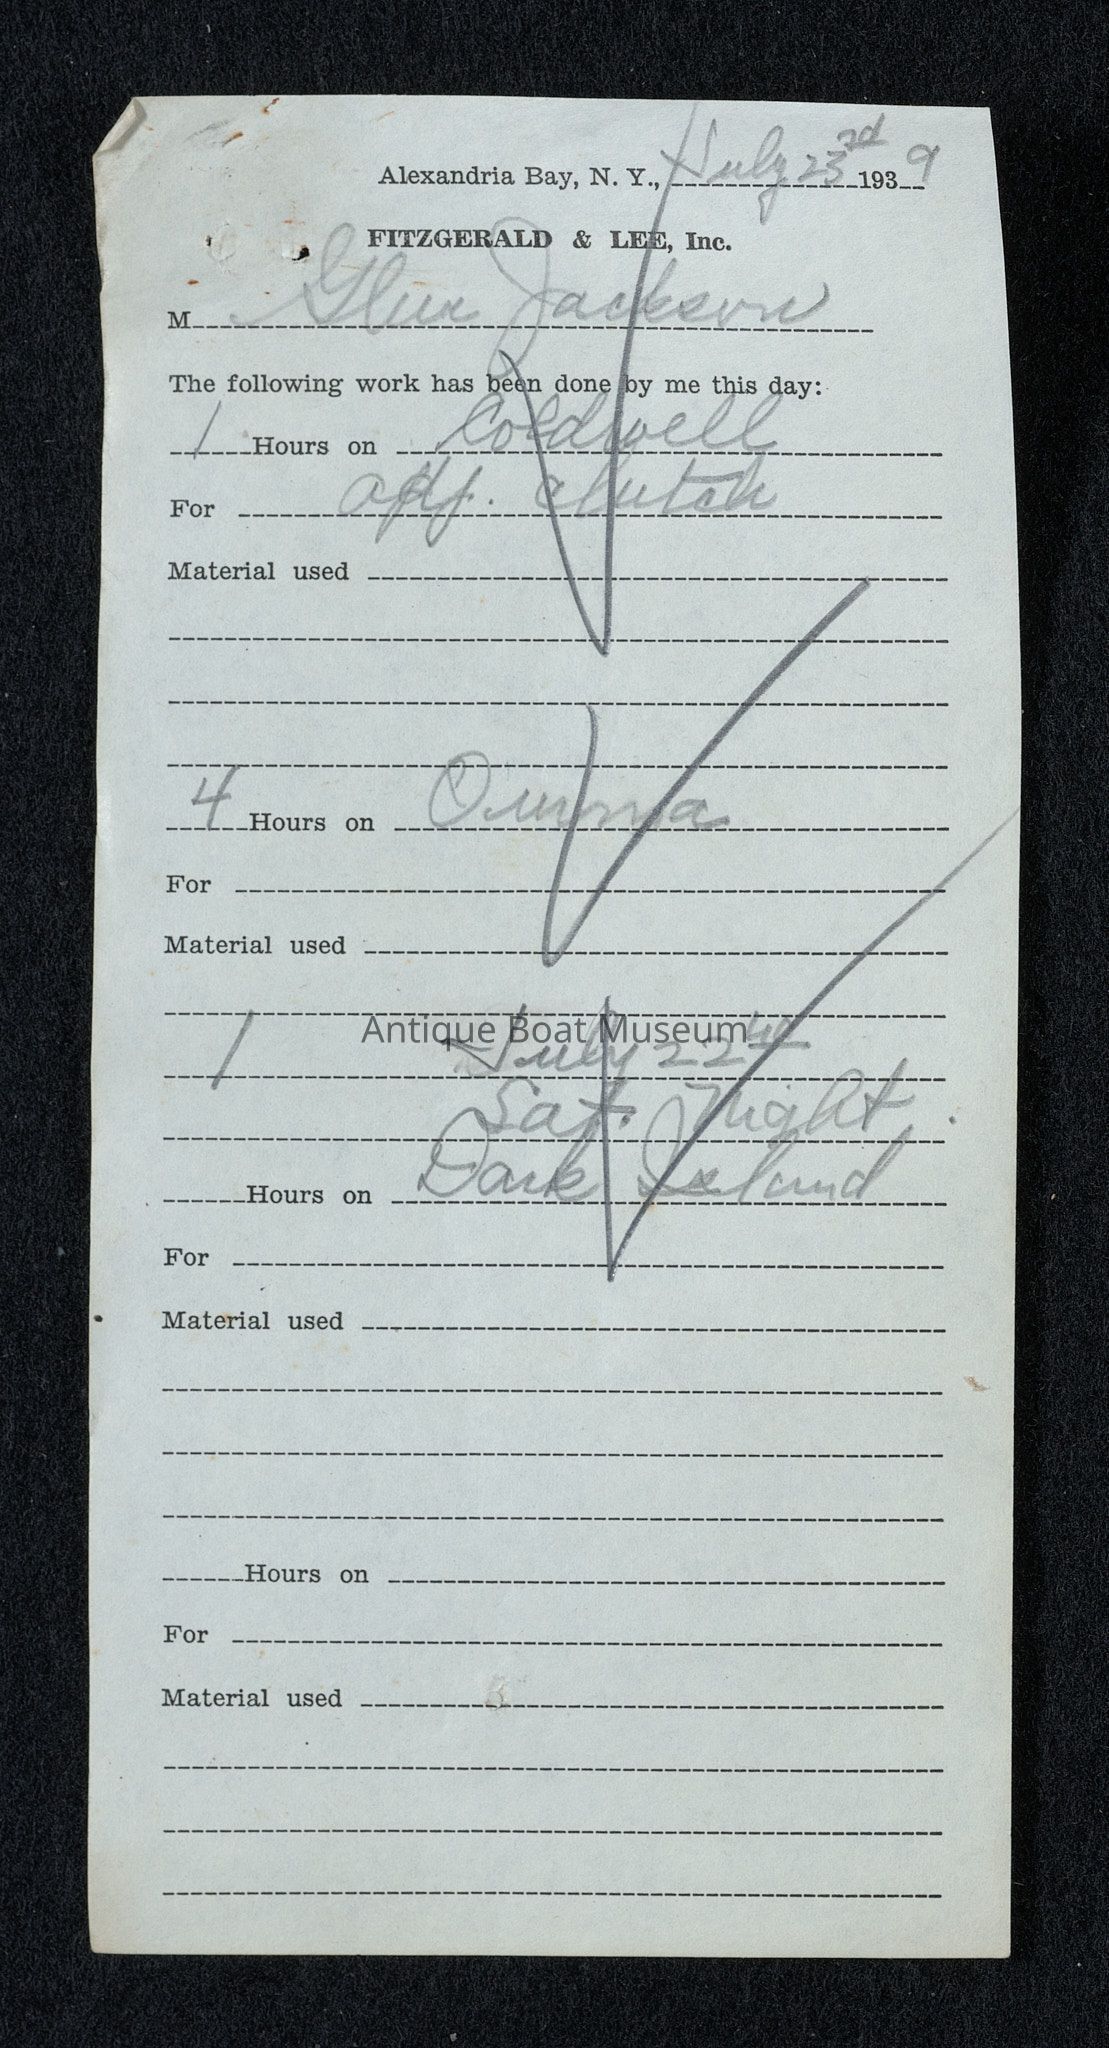 Alexandria Bay, N. Y., July 23rd 1939
FITZGERALD & LEE, Inc.
M Glen Jackson
The following work has been done by me this day:
1 Hours on Coldwell
For adj. clutch
Material used
4 Hours on
For
Material used
Antique Boat Museum
1 July 22
Sat. Night.
Hours on Dark Island
For
Material used
Hours on
For
Material used